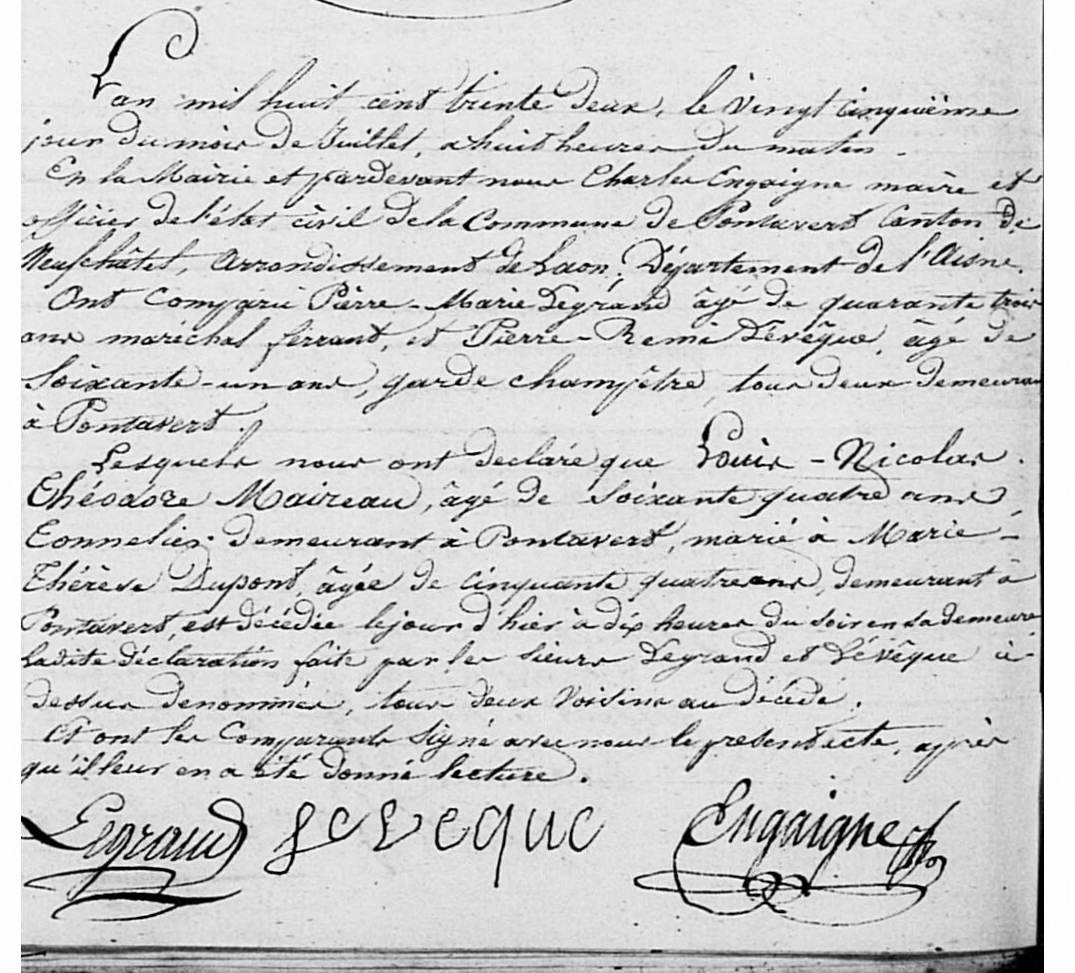 L'an mil huit cent trente deux, le vingt cinquième
jour du mois de Juillet, a huit heures du matin.
En la Mairie et pardevant nous Charles Engaigne maire et
officier de l'état civil de la Commune de Pontavert Canton de
Neufchâtel, arrondissement de Laon, Département de l'Aisne.
Ont Comparu Pierre-Marie Legrand âgé de quarante trois
ans maréchal ferrant, et Pierre-Remi Lévêque, âgé de
Soixante-un ans, garde champêtre, tous deux demeurant
à Pontavert.
Lesquels nous ont declaré que Louis-Nicolas
Théodore Maireau, âgé de soixante quatre ans
Tonnelier demeurant à Pontavert, marié à Marie-
Thérèse Dupont, âgée de cinquante quatre ans, demeurant à
Pontavert, est décédée le jour d'hier à dix heures du soir en sa demeure
Ladite déclaration faite par les sieurs Legrand et Lévêque ci-
dessus denommés, tous deux voisins au décédé.
Et ont les Comparants signé avec nous le present acte, après
qu'il leur en a été donné lecture.
Legrand Leveque Engaigne